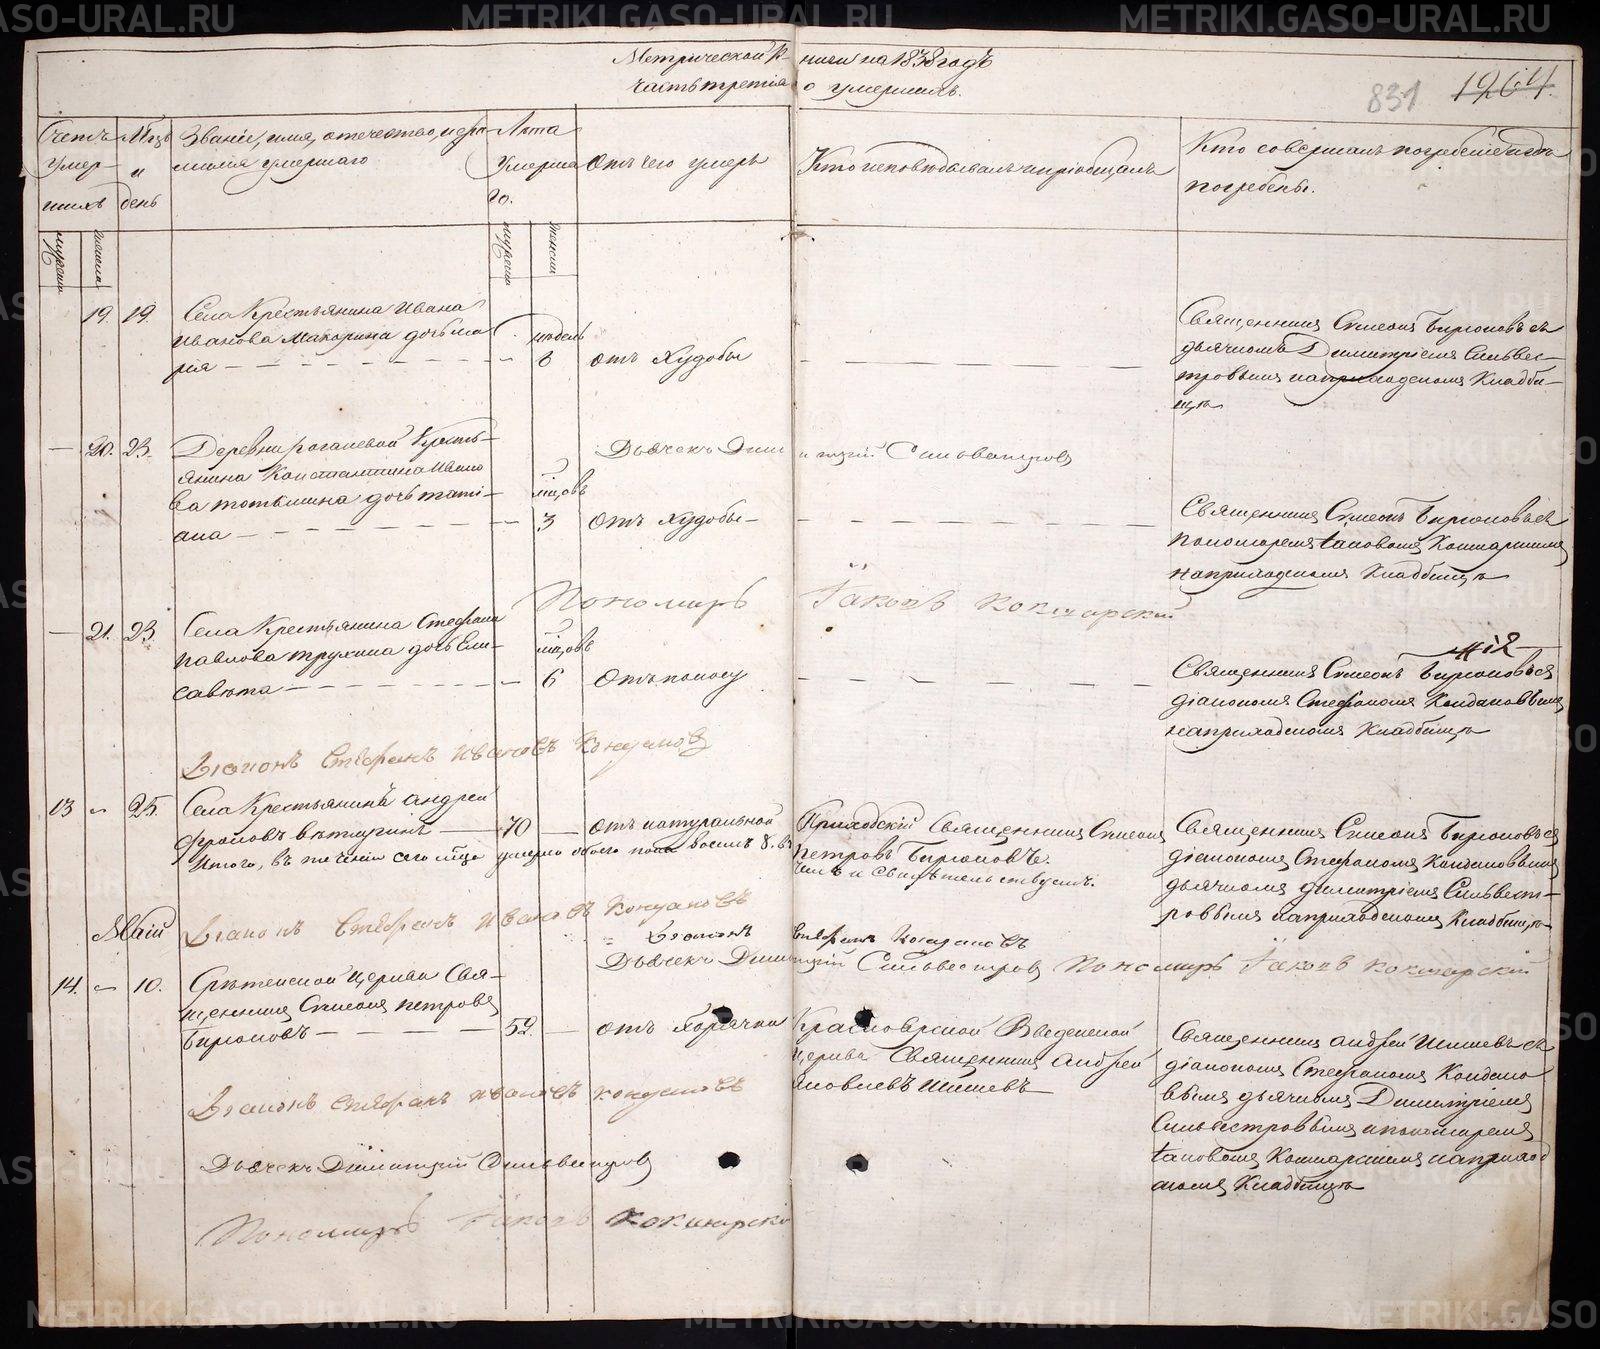 METRIKI.GASO-URAL.RU
Метрической к
ниги на 1838 годъ
831
1264.
часть третія
о умершихъ.
Счетъ умер- шихъ
Мцъ и день
Званіе, имя, отечество, и фа-
милія умершаго
Лѣта
Умерша
го.
Отъ чего умеръ
Кто исповѣдывалъ и пріобщалъ
Кто совершалъ погребеніе и гдѣ
погребены.
мужеска
женска
мужеска
женска
19. 19. Села Крестьянина Ивана
Иванова Макарина дочь Ма
рія
недель
8
отъ Худобы
Священникъ Симеонъ Бирюковъ съ
дьячкомъ Димитріемъ Сильвес-
тровымъ на приходскомъ Кладби-
щѣ
20. 23. Деревни Рогалевой Кресть-
янина Константина Ивано
ва тотьмина дочь тати-
ана
мцовъ
3
отъ Худобы
Дьячекъ Димитрій Сильвестровъ
Священникъ Симеонъ Бирюковъ съ
пономаремъ Іаковомъ Кокшарскимъ
на приходскомъ Кладбищѣ
Пономарь Іаковъ Кокшарскій
21. 23. Села Крестьянина Стефана
Павлова трухина дочь Ели-
савета
мцовъ
6
Отъ поносу
Священникъ Симеонъ Бирюковъ съ
діакономъ Стефаномъ Кондаковымъ
на приходскомъ Кладбищѣ
Діаконъ Стефанъ Ивановъ Кондаковъ
13 25. Села Крестьянинъ Андрей
Фроловъ Ветлугинъ
70
Отъ натуральной
Приходскій Священникъ Симеонъ
Петровъ Бирюковъ.
Священникъ Симеонъ Бирюковъ съ
діакономъ Стефаномъ Кондаковымъ
дьячкомъ димитріемъ Сильвест-
ровымъ на приходскомъ Кладбищѣ
Итого, въ теченіи сего мца умерло обоего пола восемь 8. въ
чемъ и Свидѣтельствуемъ.
Діаконъ Стефанъ Ивановъ Кондаковъ
Діаконъ Стефанъ Кондаковъ
Дьячекъ Димитрій Сильвестровъ Пономарь Іаковъ Кокшарскій
Маій
14. 10. Срѣтенской Церкви Свя-
щенникъ Симеонъ Петровъ
Бирюковъ
52
отъ Горячки
Красноярской Введенской
Церкви Священникъ Андрей
Яковлевъ Шишевъ
Священникъ Андрей Шишевъ съ
діакономъ Стефаномъ Кондако
вымъ дьячкомъ Димитріемъ
Сильвестровымъ и пономаремъ
Іаковомъ Кокшарскимъ на приход
скомъ Кладбищѣ
Діаконъ Стефанъ Ивановъ Кондаковъ
Дьячекъ Димитрій Сильвестровъ
Пономарь Іаковъ Кокшарскій
METRIKI.GASO-URAL.RU